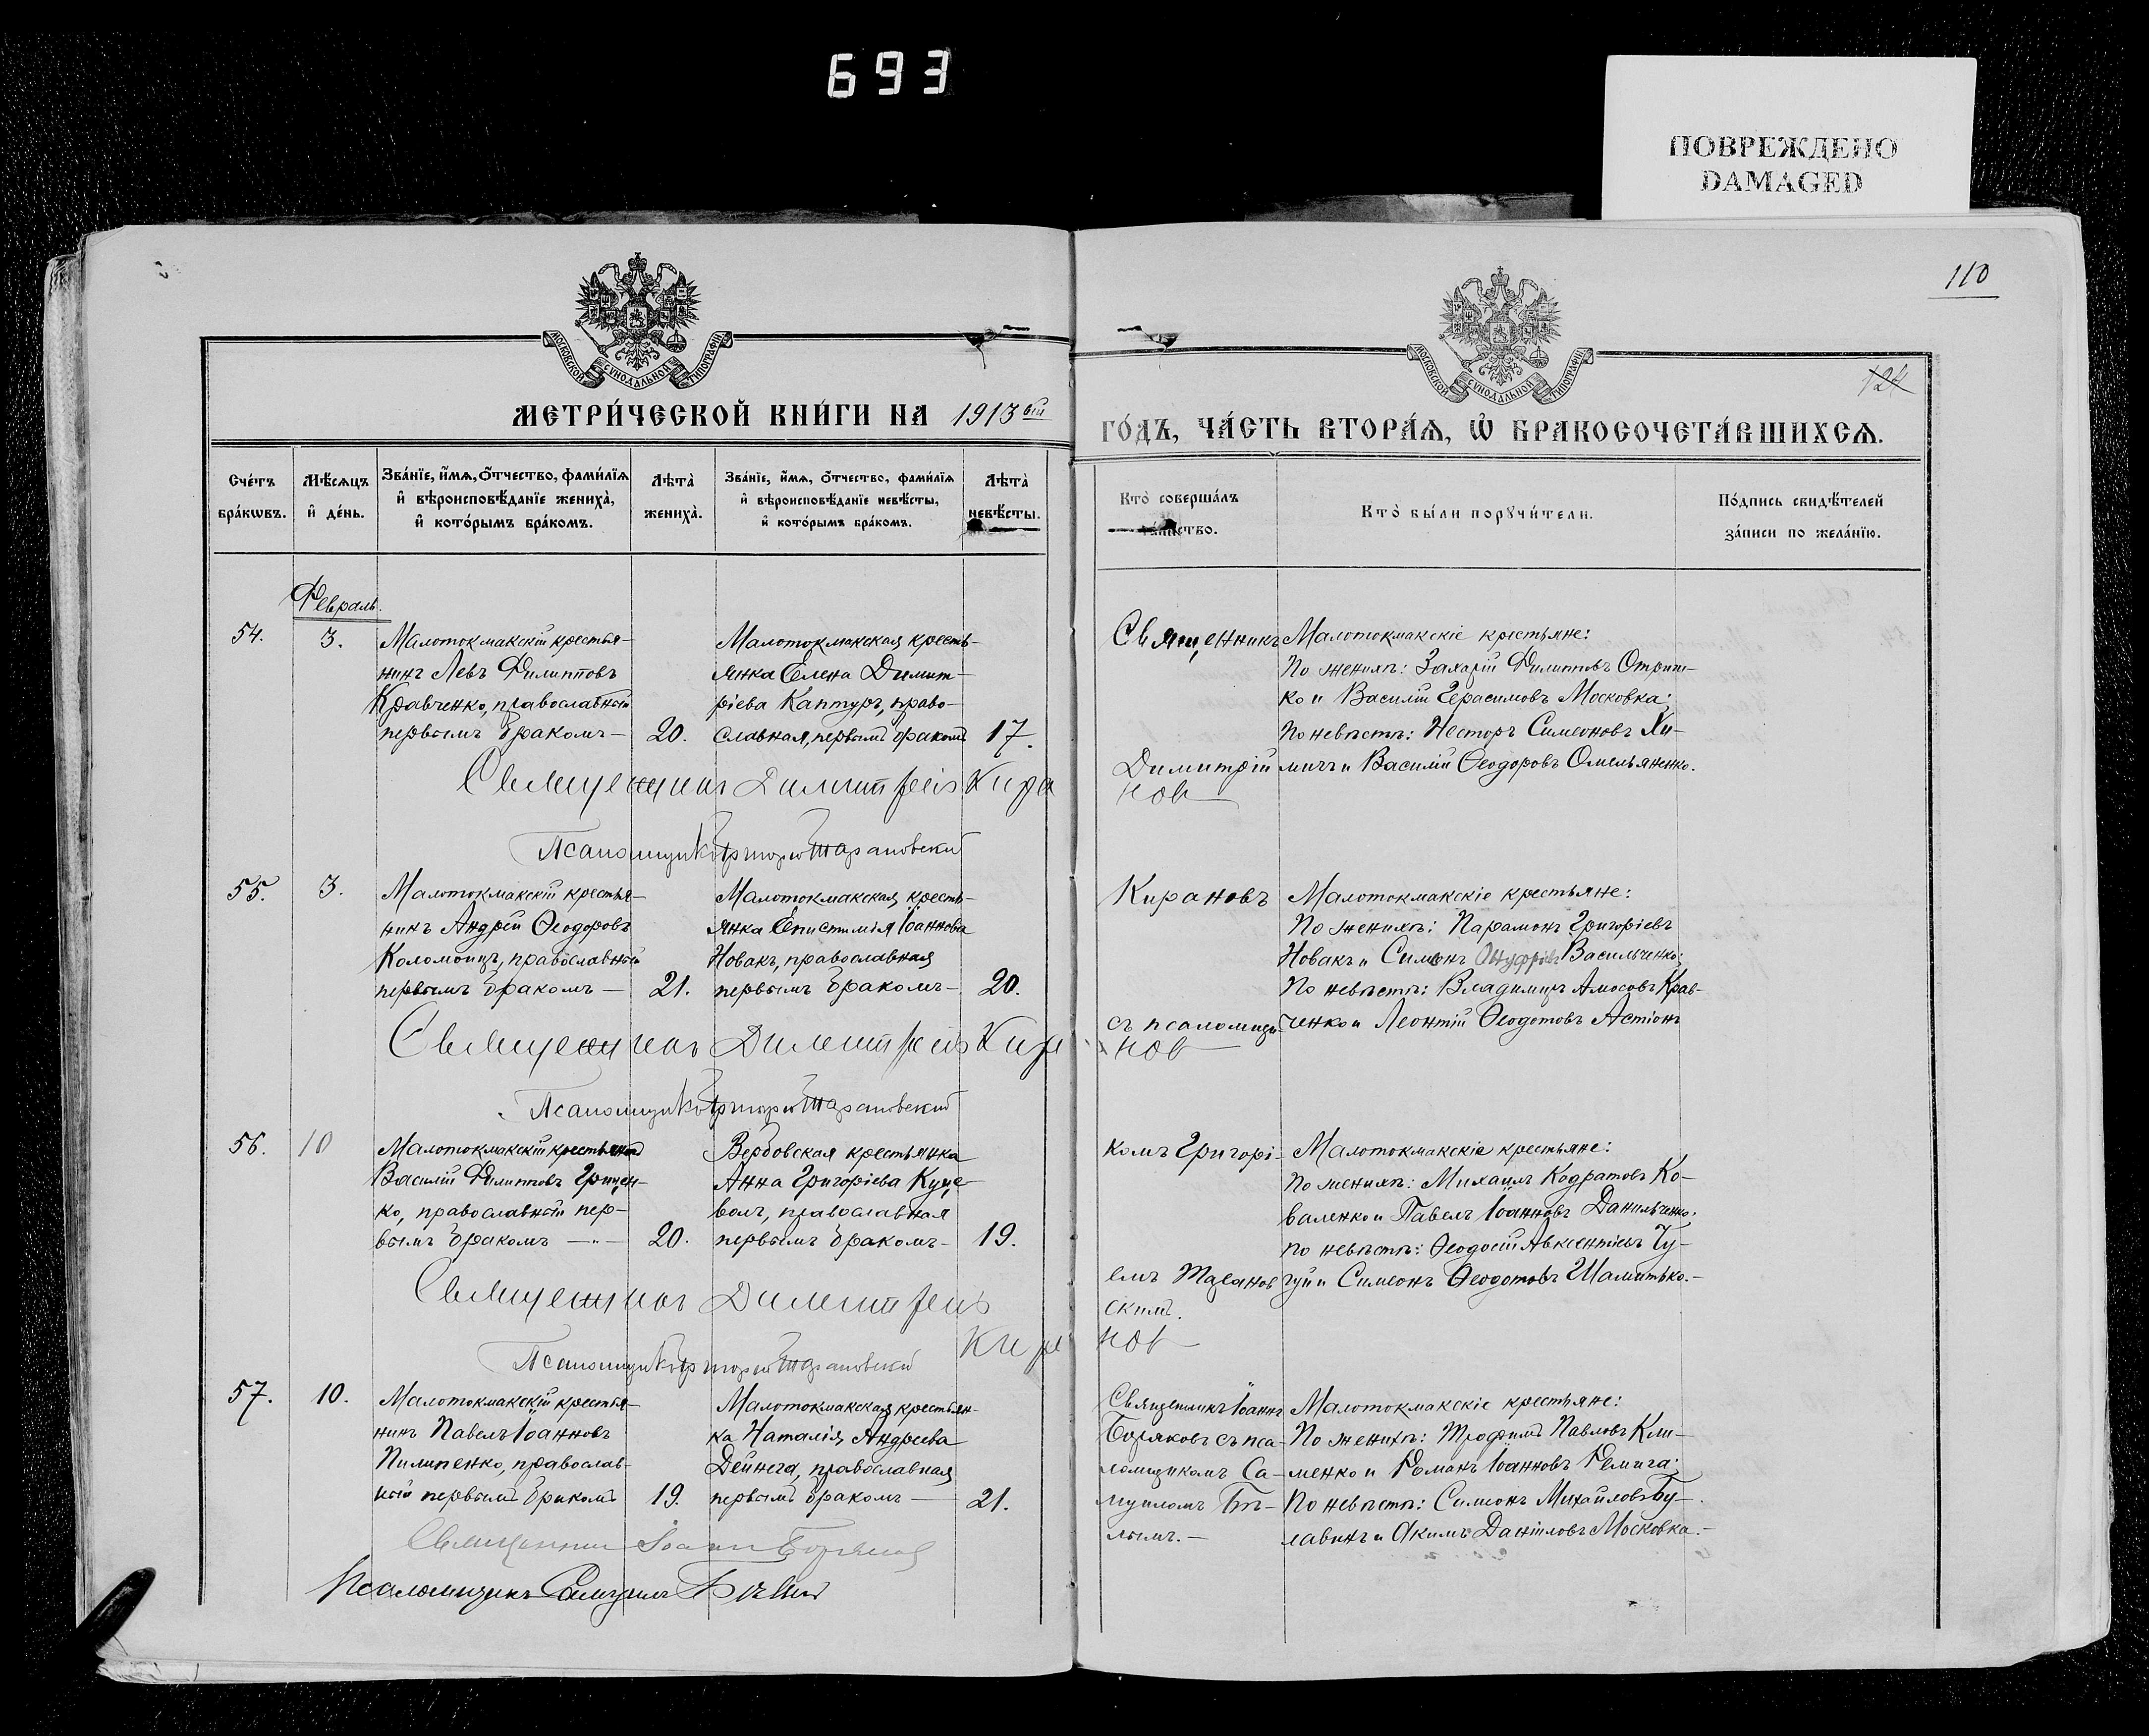 693
ПОВРЕЖДЕНО
DAMAGED
110
124
МОСКОВСКОЙ СѴНОДАЛЬНОЙ ТИПОГРАФІИ
МОСКОВСКОЙ СѴНОДАЛЬНОЙ ТИПОГРАФІИ
МЕТРИ́ЧЕСКОЙ КНИ́ГИ НА 1913 ый
ГО́ДЪ, ЧА́СТЬ ВТОРА́Ѧ, Ѽ БРАКОСОЧЕТА́ВШИХСѦ.
Сче́тъ
бра́кωвъ.
Мѣ́сѧцъ
и҆ де́нь.
Зва́нїе, и҆́мѧ, о҆́тчество, фами́лїѧ
и҆ вѣроисповѣ́данїе жениха̀,
и҆ кото́рымъ бра́комъ.
Лѣ̑та̀
жениха̀.
Зва́нїе, и҆́мѧ, о҆́тчество, фами́лїѧ
и҆ вѣроисповѣ́данїе невѣ́сты,
и҆ кото́рымъ бра́комъ.
Лѣ̑та̀
невѣ́сты.
Кто̀ соверша́лъ
та́инство.
Кто̀ бы́ли порꙋчи́тели.
По́дпись свидѣ́телей
за́писи по жела́нїю.
Февраль.
54.
3.
Малотокмакскій крестья-
нинъ Левъ Филипповъ
Кравченко, православный
первымъ бракомъ —
20.
Малотокмакская кресть-
янка Елена Димит-
ріева Каптуръ, право-
славная, первымъ бракомъ
17.
Священникъ
Димитрій
Малотокмакскіе крестьяне:
По женихѣ: Захарій Филипповъ Отриш-
ко и Василій Герасимовъ Московка;
по невѣстѣ: Несторъ Симеоновъ Хи-
мичъ и Василій Ѳеодоровъ Омельяненко.
Священникъ Димитрій Кира
нов
Псаломщикъ Григорій Тарановский
55.
3.
Малотокмакскій крестья-
нинъ Андрей Ѳеодоровъ
Коломоецъ, православный
первымъ бракомъ —
21.
Малотокмакская кресть-
янка Епистимія Іоаннова
Новакъ, православная
первымъ бракомъ —
20.
Кирановъ
съ псаломщи-
Малотокмакскіе крестьяне:
По женихѣ: Парамонъ Григоріевъ
Новакъ и Симеонъ Онуфріевъ Васильченко;
По невѣстѣ: Владимиръ Амосовъ Крав-
ченко и Леонтій Ѳеодотовъ Астіонъ
Священникъ Димитрій Кира
нов
Псаломщикъ Григорій Тарановский
56.
10
Малотокмакскій крестьянинъ
Василій Филипповъ Грицен-
ко, православный пер-
вымъ бракомъ —"—
20.
Вербовская крестьянка
Анна Григоріева Куце
волъ, православная
первымъ бракомъ —
19.
комъ Григорі-
емъ Таранов
скимъ.
Малотокмакскіе крестьяне:
по женихѣ: Михаилъ Кодратовъ Ко-
валенко и Павелъ Іоанновъ Данильченко.
по невѣстѣ: Ѳеодосій Авксентіевъ Чу-
гуй и Симеонъ Ѳеодотовъ Шамитько. —
Священникъ Димитрій
Кира
нов
Псаломщикъ Григорій Тарановский
57.
10.
Малотокмакскій крестья-
нинъ Павелъ Іоанновъ
Пилипенко, православ-
ный первымъ бракомъ
19.
Малотокмакская крестьян-
ка Наталія Андреева
Дейнега, православная
первымъ бракомъ —
21.
Священникъ Іоаннъ
Боряковъ съ пса-
ломщикомъ Са-
муиломъ Бѣ-
лымъ. —
Малотокмакскіе крестьяне:
По женихѣ: Трофимъ Павловъ Кли-
менко и Романъ Іоанновъ Ремига;
По невѣстѣ: Симеонъ Михайловъ Бу-
лавинъ и Якимъ Даниловъ Московка. —
Священникъ Іоаннъ Боряков
Псаломщикъ Самуилъ Бѣлый